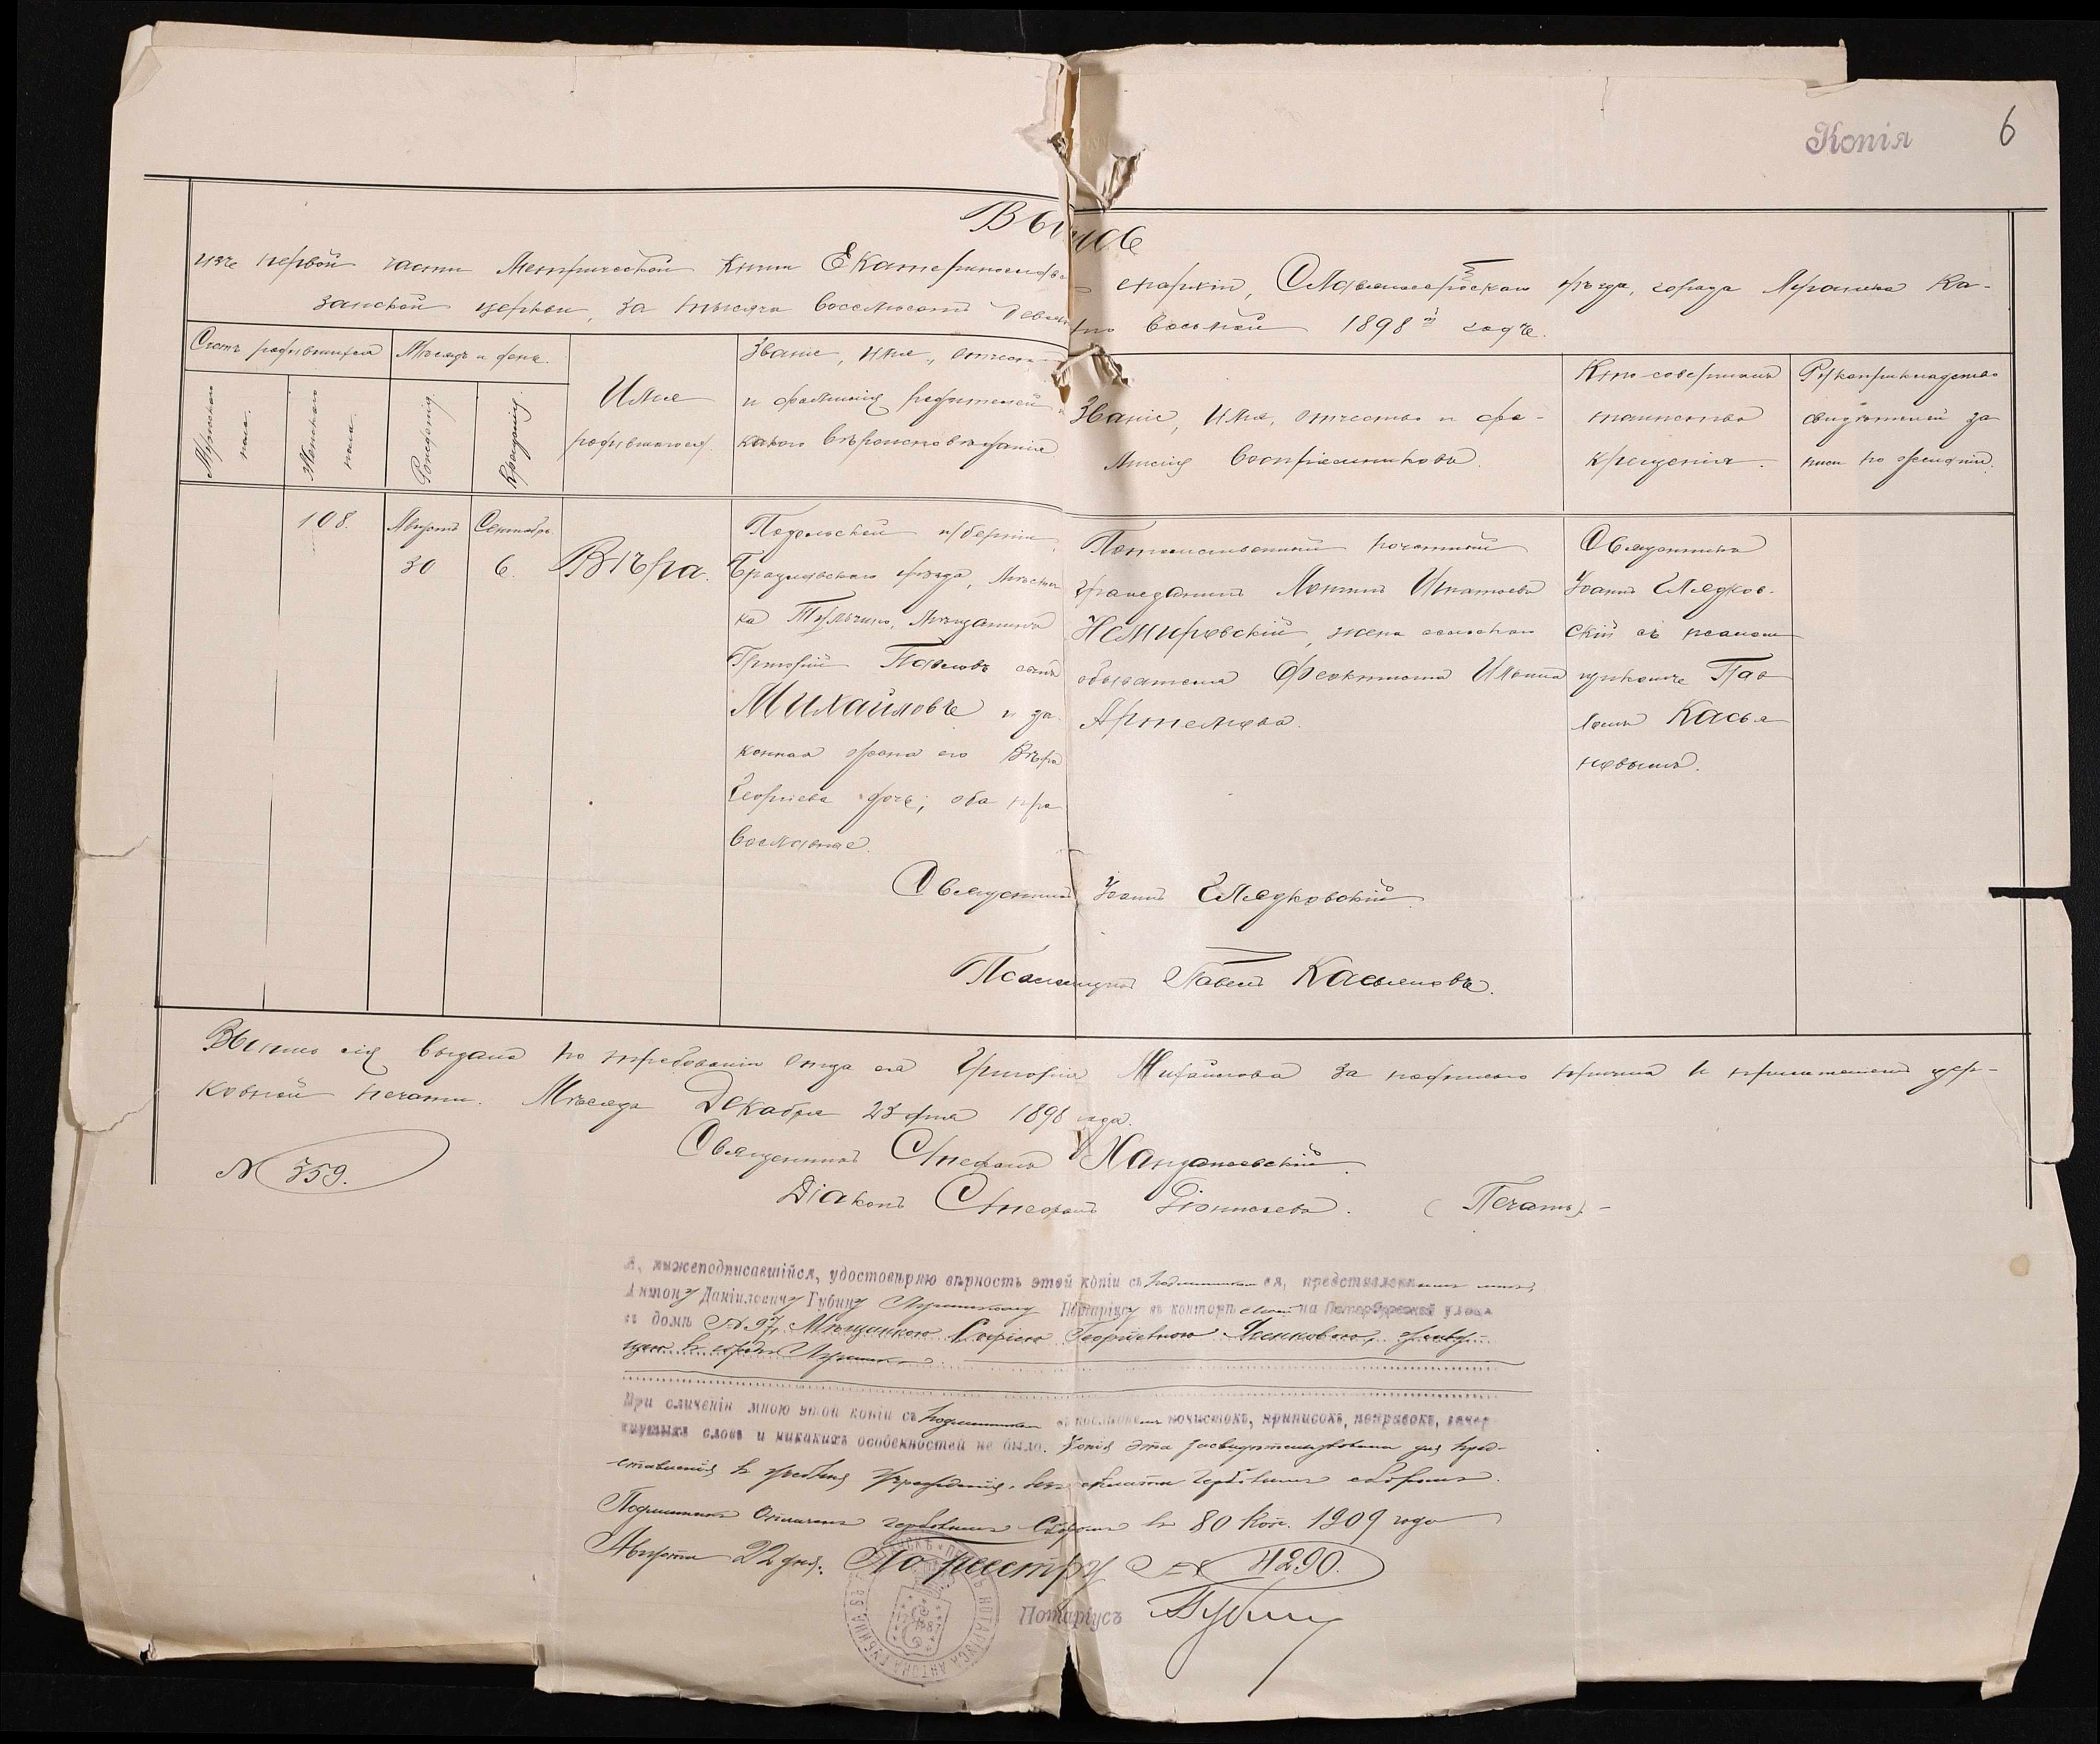 Копія
6
Выпись
изъ первой части Метрической Книги Екатеринослав епархіи, Славяносербскаго уѣзда, города Луганска Ка-
занской церкви, за тысяча восемьсотъ девяно восьмой 1898й годъ.
Счетъ родившихся
Мѣсяцъ и день.
Мужскаго
пола.
Женскаго
пола.
Рожденія.
Крещенія.
Имя
родившагося.
Званіе, имя, отчество
и фамилія родителей и
какого вѣроисповѣданія.
Званіе, имя, отчество и фа-
милія воспріемниковъ.
Кто совершалъ
таинство
крещенія.
Рукоприкладство
свидѣтелей за
писи по желанію.
108.
Августъ
30
Сентябрь
6.
Вѣра.
Подольской губерніи,
Брацлавскаго уѣзда, мѣстеч
ка Тульчина, мѣщанинъ
Григорій Павловъ сынъ
Михайловъ и за
конная жена его Вѣра
Георгіева дочь; оба пра
вославные.
Потомственный почетный
гражданинъ Игнатьевъ
Немировскій, жена сельскаго
обывателя Феоктиста Ильина
Артемова.
Священникъ
Іоаннъ Слядков-
скій съ псалом
щикомъ Пав
ломъ Касья
новымъ.
Священникъ Іоаннъ Слядковскій.
Псаломщикъ Павелъ Касьяновъ.
Выпись сія выдана по требованію отца ея Григорія Михайлова за подписью причта и приложеніемъ цер-
ковной печати. Мѣсяца Декабря 23 дня 1898 года.
Священникъ Стефанъ
№ 359.
Діаконъ Стефанъ (Печать).-
Я, нижеподписавшійся, удостовѣряю вѣрность этой копіи съ подлинникомъ ея, представленнымъ мнѣ,
Антону Даніиловичу Губину Луганскому Нотаріусу въ конторѣ моей на Петербургской улицѣ
въ домѣ № 97, Мѣщанкою Софіею Георгіевною живу-
щею въ городѣ Луганскѣ.
При сличеніи мною этой копіи съ подлинникомъ въ послѣднемъ почистокъ, приписокъ, поправокъ, зачер
кнутыхъ словъ и никакихъ особенностей не было. Копія эта засвидѣтельствована для пред-
ставленія въ учебныя учрежденія, безъ оплаты гербовымъ сборомъ.
Подлинникъ оплаченъ гербовымъ сборомъ въ 80 коп. 1909 года
Августа 22 дня. По реестру № 4290.
Нотаріусъ Губинъ